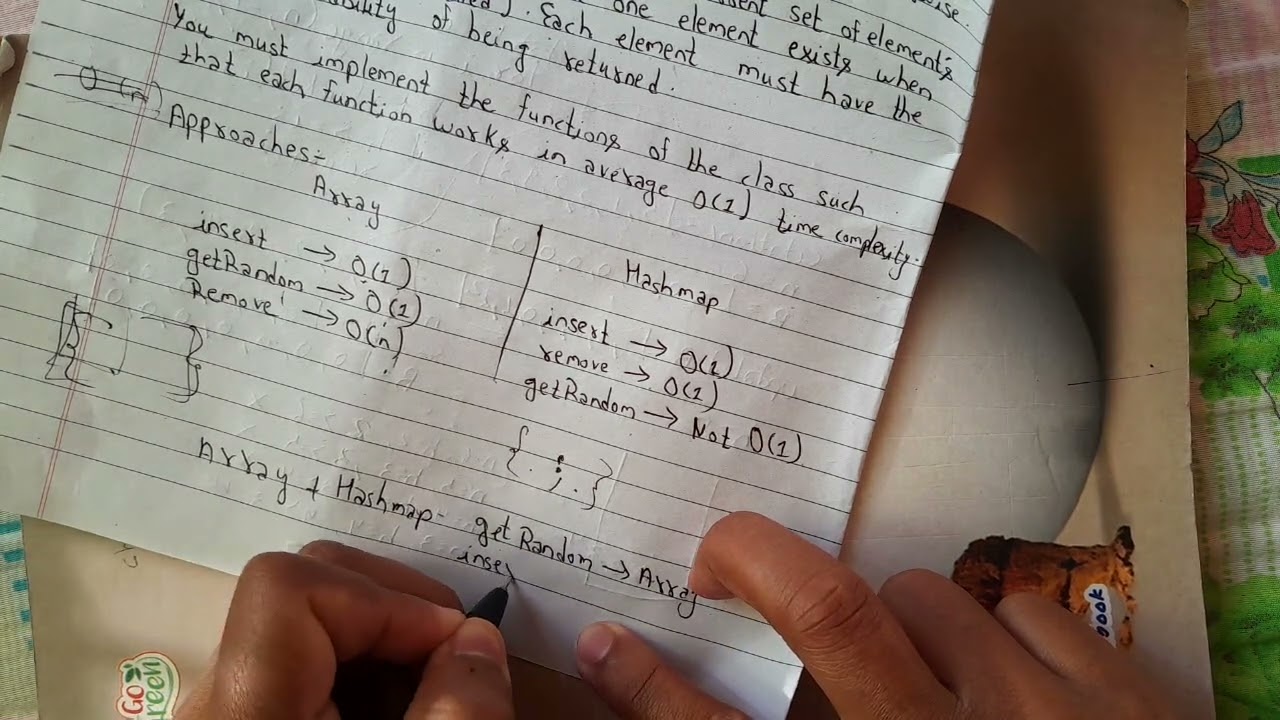 set of elements
one element exists when
of being returned. Each element must have the
You must implement the functions of the class such
that each function works in average O(1) time complexity.
Approaches:-
Array
insert → O(1)
getRandom → O(1)
Remove → O(n)
Hashmap
insert → O(1)
remove → O(1)
getRandom → Not O(1)
{ : , . }
Array + Hashmap - getRandom → Array
inser
GO
Green
book